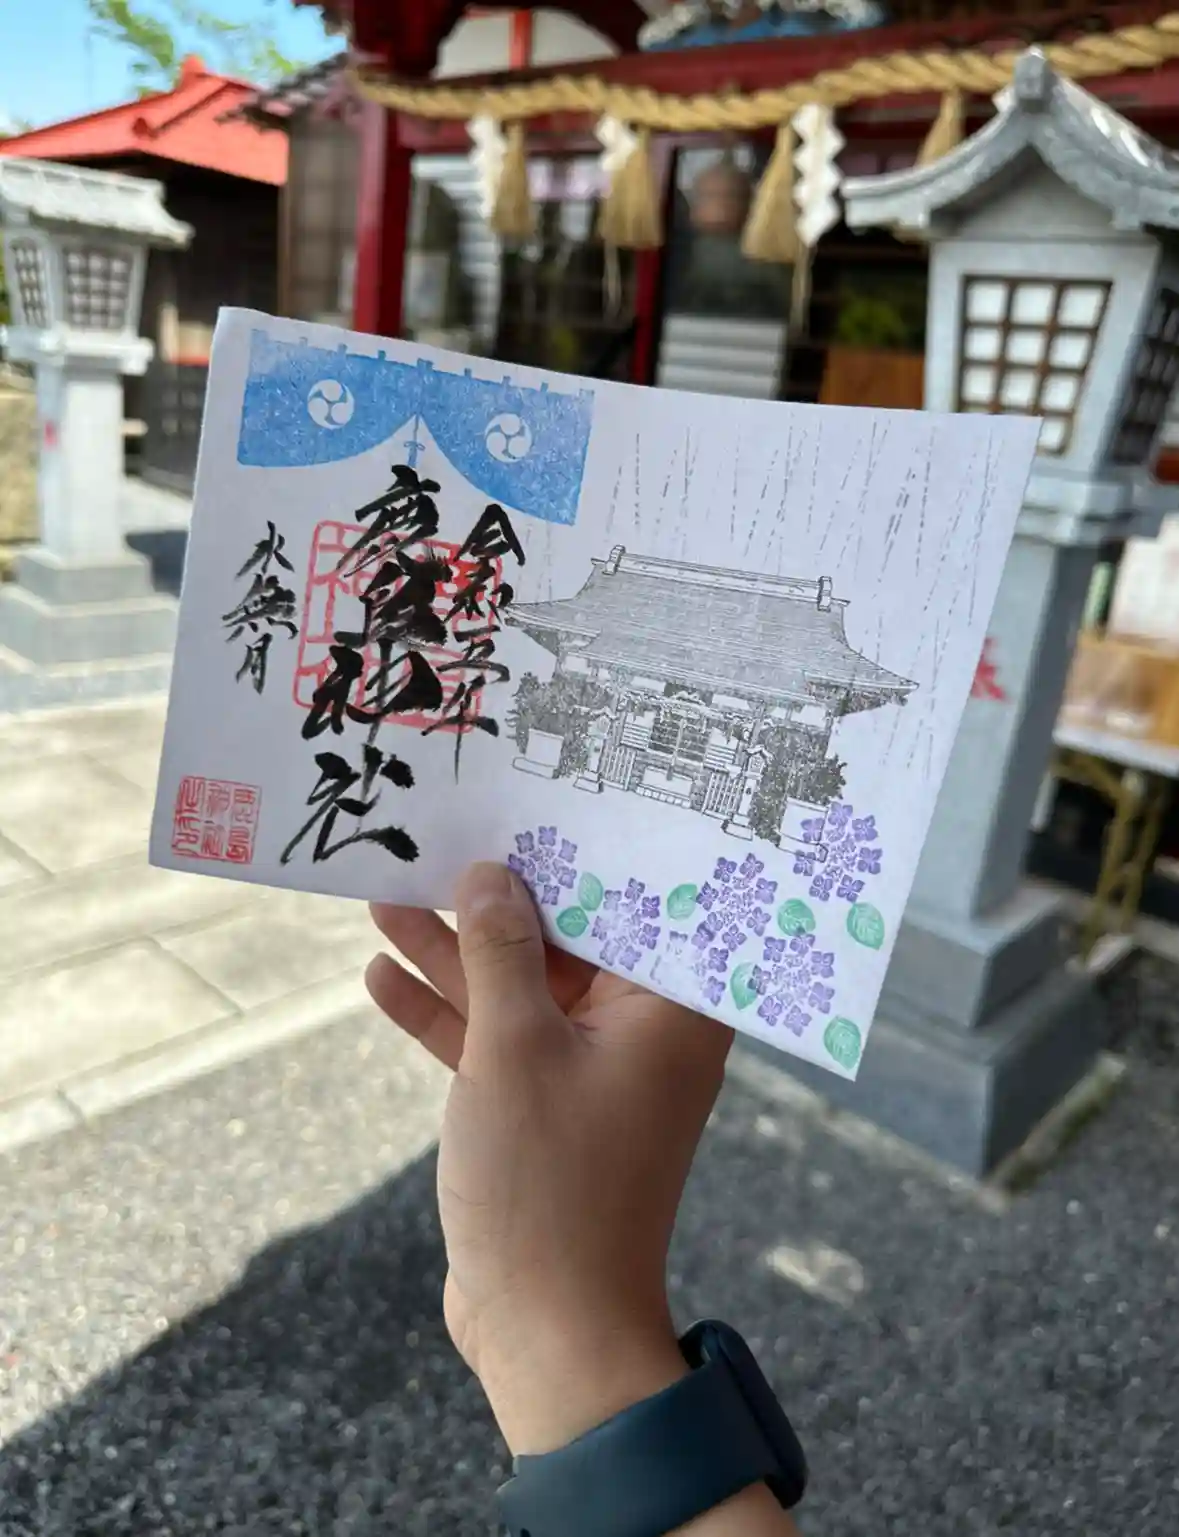 令和五年
鹿島神社
水無月
鹿島
神社
之印